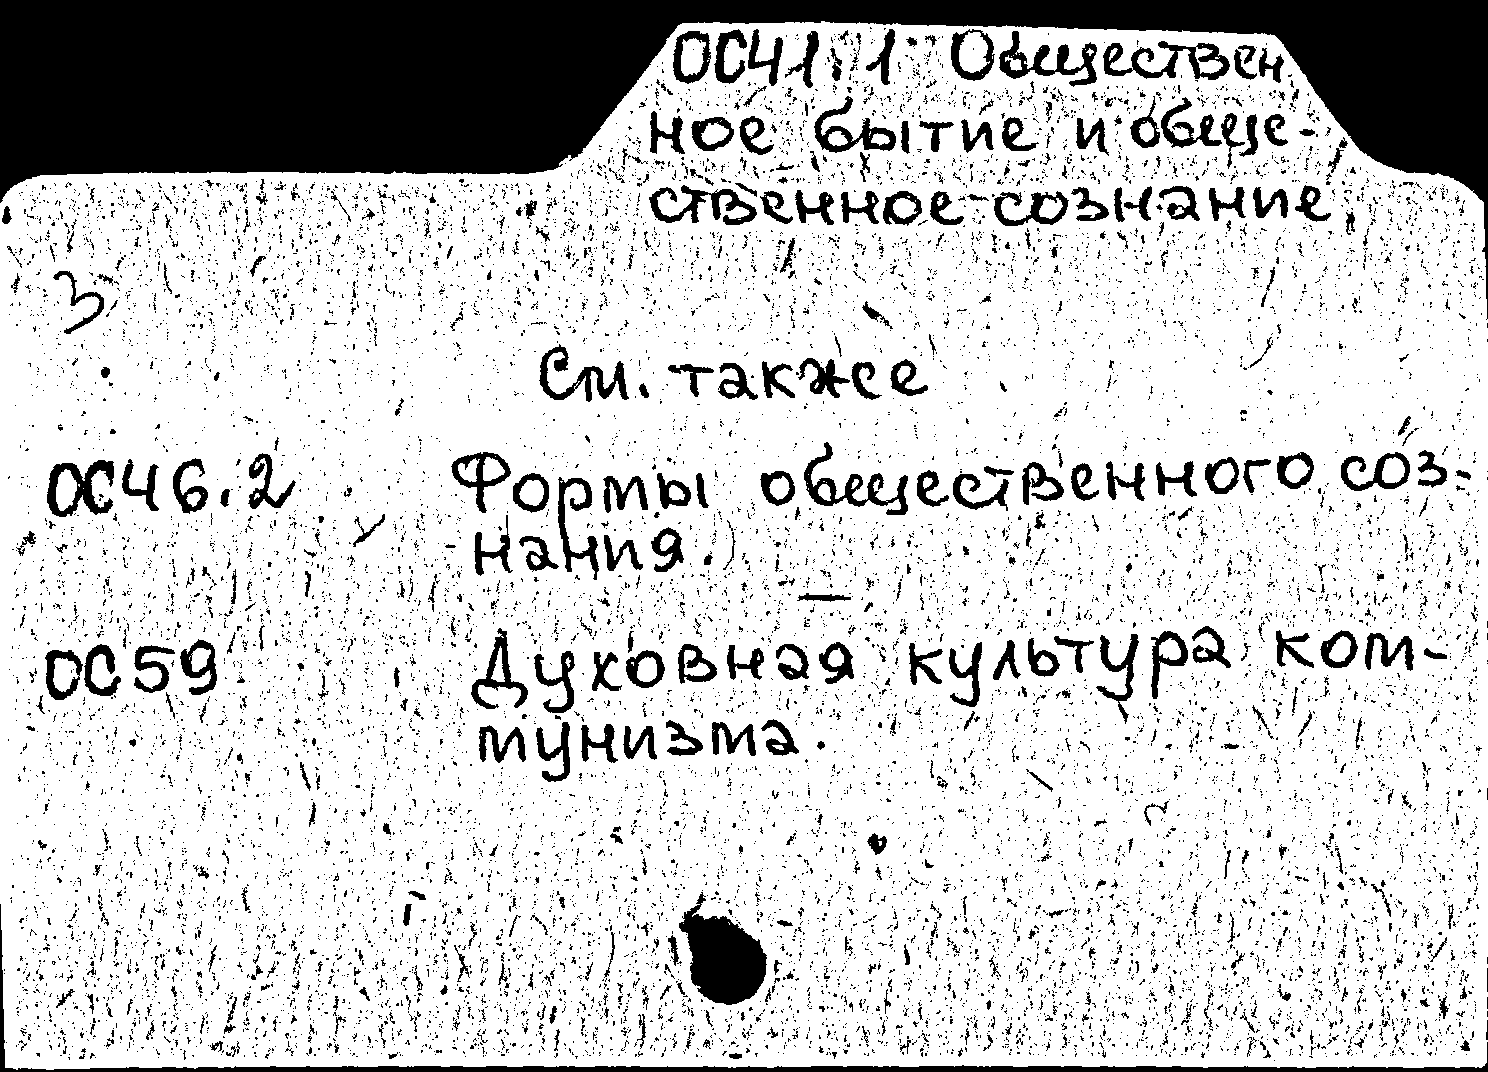 ОС41.1 Обществен
ное бытие и обще-
ственное сознание.
3
См. также
ОС46.2 Формы общественного соз-
нания.
ОС59 Духовная культура ком-
мунизма.